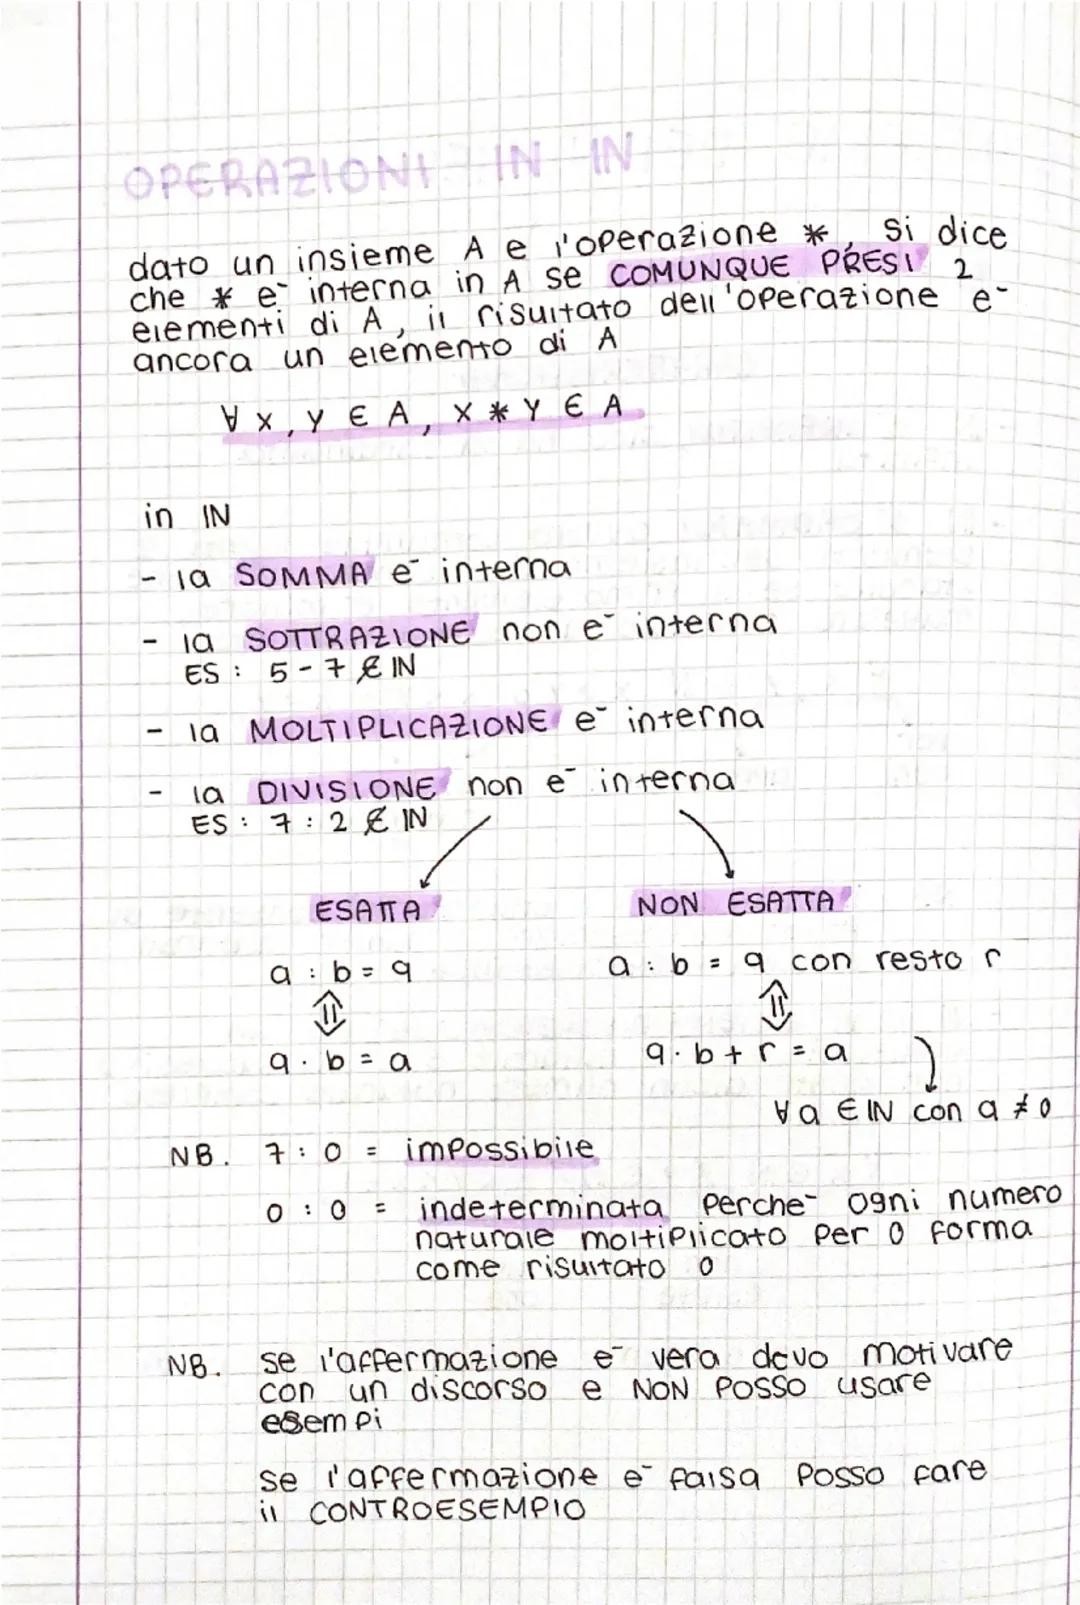 OPERAZIONI IN IN
dato un insieme A e l'operazione *, si dice
che * e- interna in A se COMUNQUE PRESI 2
elementi di A, il risultato dell'operazione e-
ancora un elemento di A
∀ x, y ∈ A, x * y ∈ A
in IN
- la SOMMA e- interna
- la SOTTRAZIONE non e- interna
ES : 5 - 7 ∉ IN
- la MOLTIPLICAZIONE e- interna
- la DIVISIONE non e- interna
ES : 7 : 2 ∉ IN
ESATTA
NON ESATTA
a : b = q
a : b = q con resto r
⇕
⇕
q · b = a
q · b + r = a
∀ a ∈ IN con a ≠ 0
NB. 7 : 0 = impossibile
0 : 0 = indeterminata perche- ogni numero
naturale moltiplicato per 0 forma
come risultato 0
NB. se l'affermazione e- vera devo motivare
con un discorso e NON posso usare
esempi
se l'affermazione e- falsa posso fare
il CONTROESEMPIO